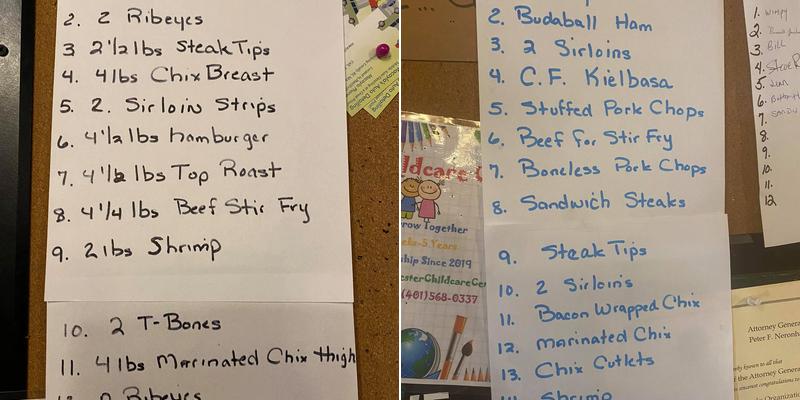 2. 2 Ribeyes
3 2 1/2 lbs Steak Tips
4. 4 lbs Chix Breast
5. 2. Sirloin Strips
6. 4 1/2 lbs hamburger
7. 4 1/2 lbs Top Roast
8. 4 1/4 lbs Beef Stir Fry
9. 2 lbs Shrimp
10. 2 T-Bones
11. 4 lbs Marinated Chix thigh
Ribeyes
2. Budaball Ham
3. 2 Sirloins
4. C.F. Kielbasa
5. Stuffed Pork Chops
6. Beef for Stir Fry
7. Boneless Pork Chops
8. Sandwich Steaks
9. Steak Tips
10. 2 Sirloin's
11. Bacon Wrapped Chix
12. marinated Chix
13. Chix Cutlets
Shrimp
ldcare
row Together
eks-5 Years
ship Since 2019
esterChildcareCen
(401)568-0337
1. Wimpy
2.
3. Bill
4. Steve R
5. Jean
6.
7.
8.
9.
10.
11.
12
Attorney Genera
Peter F. Neronh
eby known to all that
of the Attorney Genera
sincerest congratulations to
Organizatio